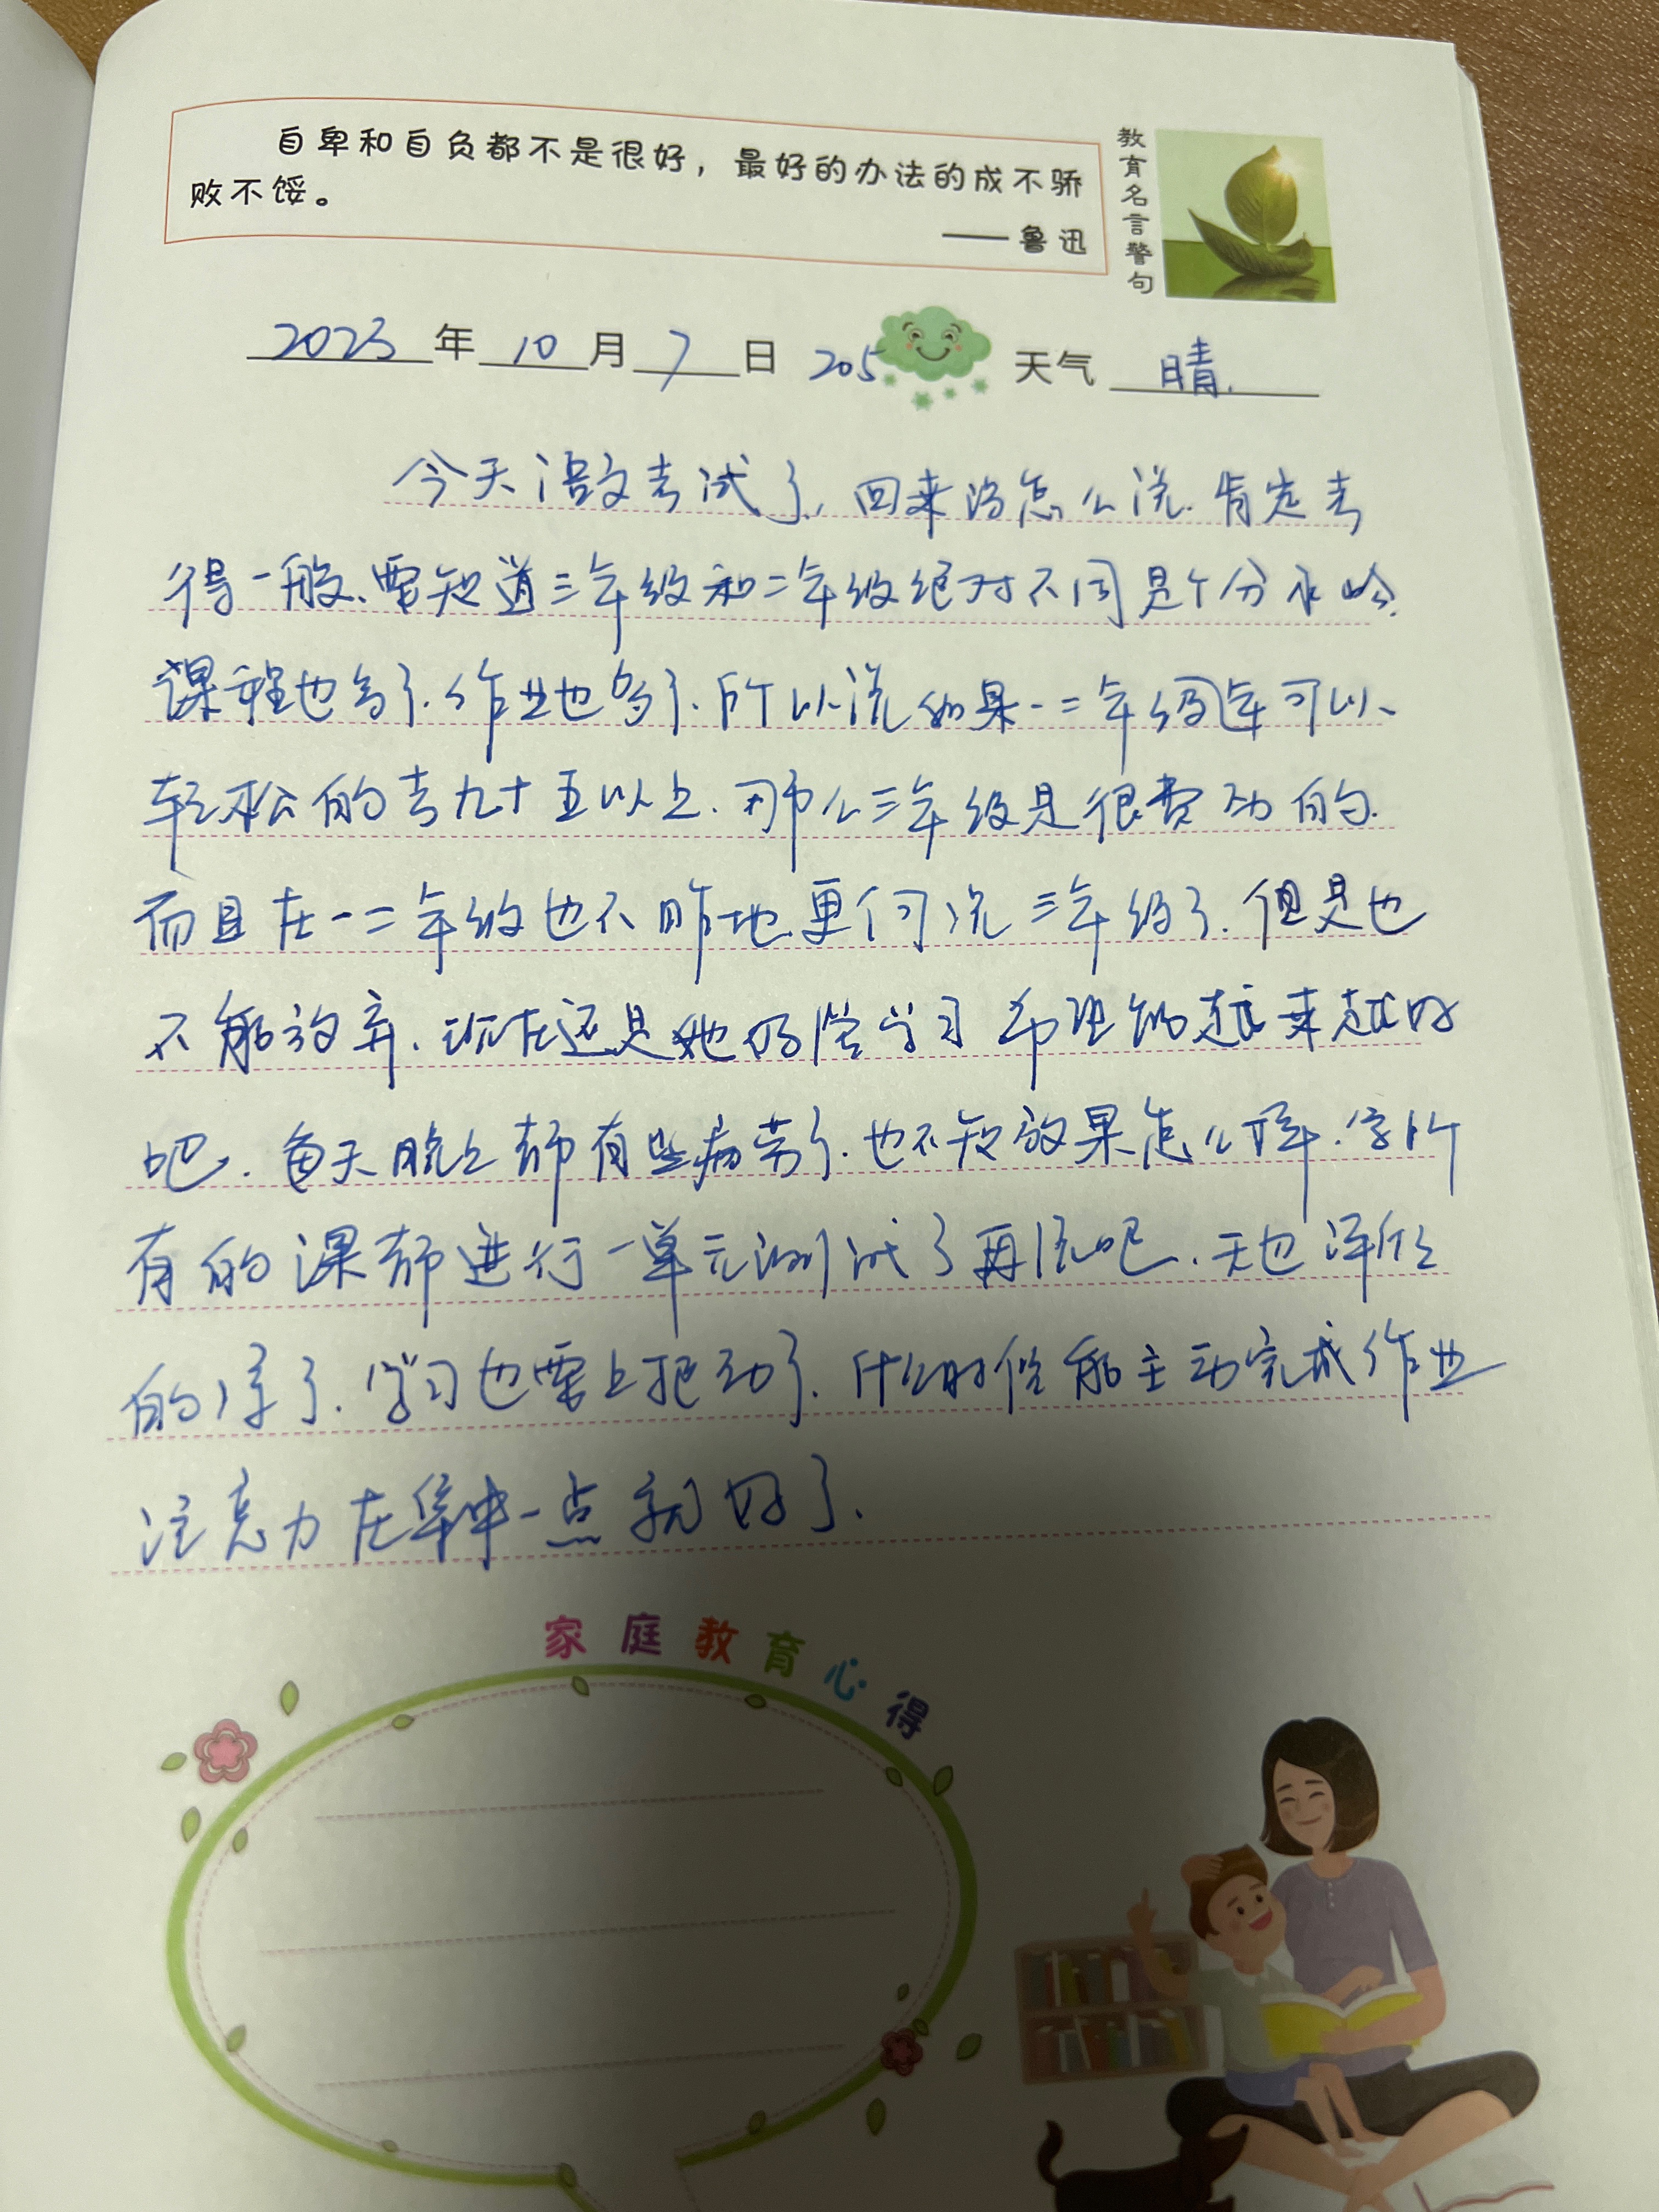 自卑和自负都不是很好，最好的办法的成不骄
败不馁。
——鲁迅
教育名言警句
2023年10月7日 205 天气 晴.
今天语文考试了,回来没怎么说.肯定考
得一般.要知道三年级和二年级绝对不同是个分水岭.
课程也多了.作业也多了.所以说如果一二年级还可以
轻松的考九十五以上.那么三年级是很费劲的.
而且在一二年级也不咋地.更何况三年级了.但是也
不能放弃.现在还是她的学习 希望能越来越好
吧.每天晚上都有些疲劳了.也不知效果怎么样.等所
有的课都进行一单元测试了再说吧.天也渐渐
的凉了.学习也要上把劲了.什么时候能主动完成作业
注意力在集中一点就好了.
家庭教育心得